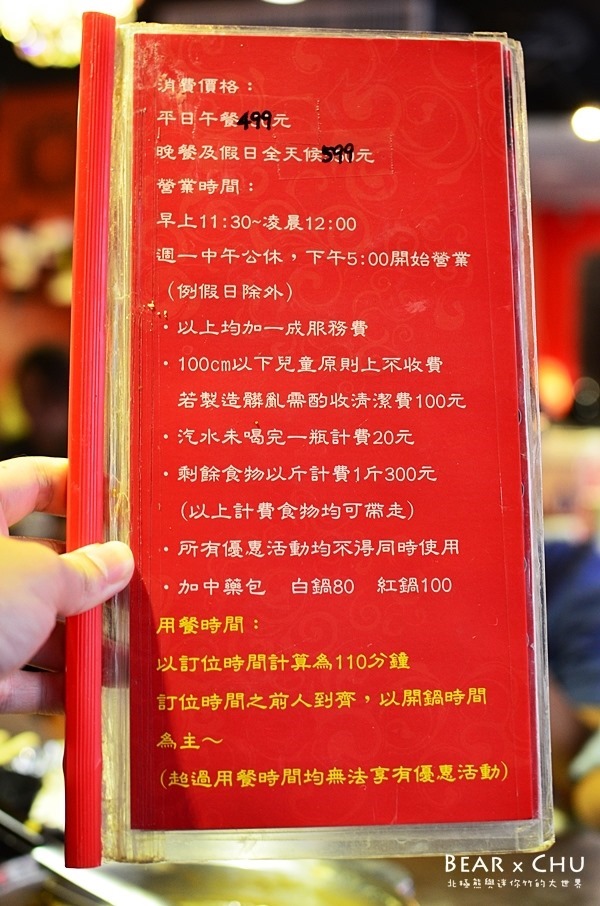 消費價格：
平日午餐499元
晚餐及假日全天候599元
營業時間：
早上11:30~凌晨12:00
週一中午公休，下午5:00開始營業
(例假日除外)
·以上均加一成服務費
·100cm以下兒童原則上不收費
若製造髒亂需酌收清潔費100元
·汽水未喝完一瓶計費20元
·剩餘食物以斤計費1斤300元
(以上計費食物均可帶走)
·所有優惠活動均不得同時使用
·加中藥包 白鍋80 紅鍋100
用餐時間：
以訂位時間計算為110分鐘
訂位時間之前人到齊，以開鍋時間
為主～
(超過用餐時間均無法享有優惠活動)
BEAR x CHU
北極熊與迷你竹的大世界